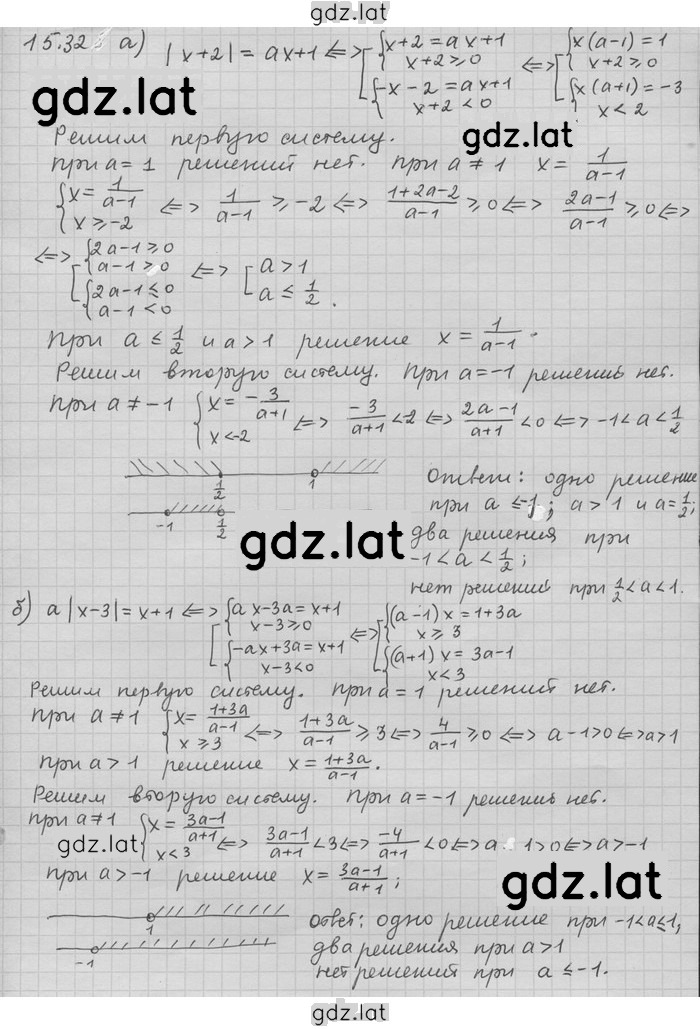 gdz.lat
15.32 а) |x+2| = ax+1 <=> [{x+2 = ax+1 x+2 ≥ 0 {-x-2 = ax+1 x+2 < 0 <=> [{x(a-1) = 1 x+2 ≥ 0 {x(a+1) = -3 x < 2
gdz.lat
gdz.lat
Решим первую систему.
при a = 1 решений нет. при a ≠ 1 x = 1/(a-1)
{x = 1/(a-1) x ≥ -2 <=> 1/(a-1) ≥ -2 <=> (1+2a-2)/(a-1) ≥ 0 <=> (2a-1)/(a-1) ≥ 0 <=>
<=> [{2a-1 ≥ 0 a-1 > 0 {2a-1 ≤ 0 a-1 < 0 <=> [a > 1 a ≤ 1/2.
при a ≤ 1/2 и a > 1 решение x = 1/(a-1).
Решим вторую систему. при a = -1 решений нет.
при a ≠ -1 {x = -3/(a+1) x < -2 <=> -3/(a+1) < 2 <=> (2a-1)/(a+1) < 0 <=> -1 < a < 1/2
1/2 1
-1 1/2
gdz.lat
Ответ: одно решение
при a ≤ -1; a > 1 и a = 1/2;
два решения при
-1 < a < 1/2;
нет решений при 1/2 < a < 1.
б) a|x-3| = x+1 <=> [{ax-3a = x+1 x-3 ≥ 0 {-ax+3a = x+1 x-3 < 0 <=> [{(a-1)x = 1+3a x ≥ 3 {(a+1)x = 3a-1 x < 3
Решим первую систему. при a = 1 решений нет.
при a ≠ 1 {x = (1+3a)/(a-1) x ≥ 3 <=> (1+3a)/(a-1) ≥ 3 <=> 4/(a-1) ≥ 0 <=> a-1 > 0 <=> a > 1
при a > 1 решение x = (1+3a)/(a-1).
Решим вторую систему. при a = -1 решений нет.
при a ≠ 1 {x = (3a-1)/(a+1) x < 3 <=> (3a-1)/(a+1) < 3 <=> -4/(a+1) < 0 <=> a 1 > 0 <=> a > -1
gdz.lat
gdz.lat
при a > -1 решение x = (3a-1)/(a+1);
1
-1
Ответ: одно решение при -1 < a ≤ 1,
два решения при a > 1
нет решений при a ≤ -1.
gdz.lat